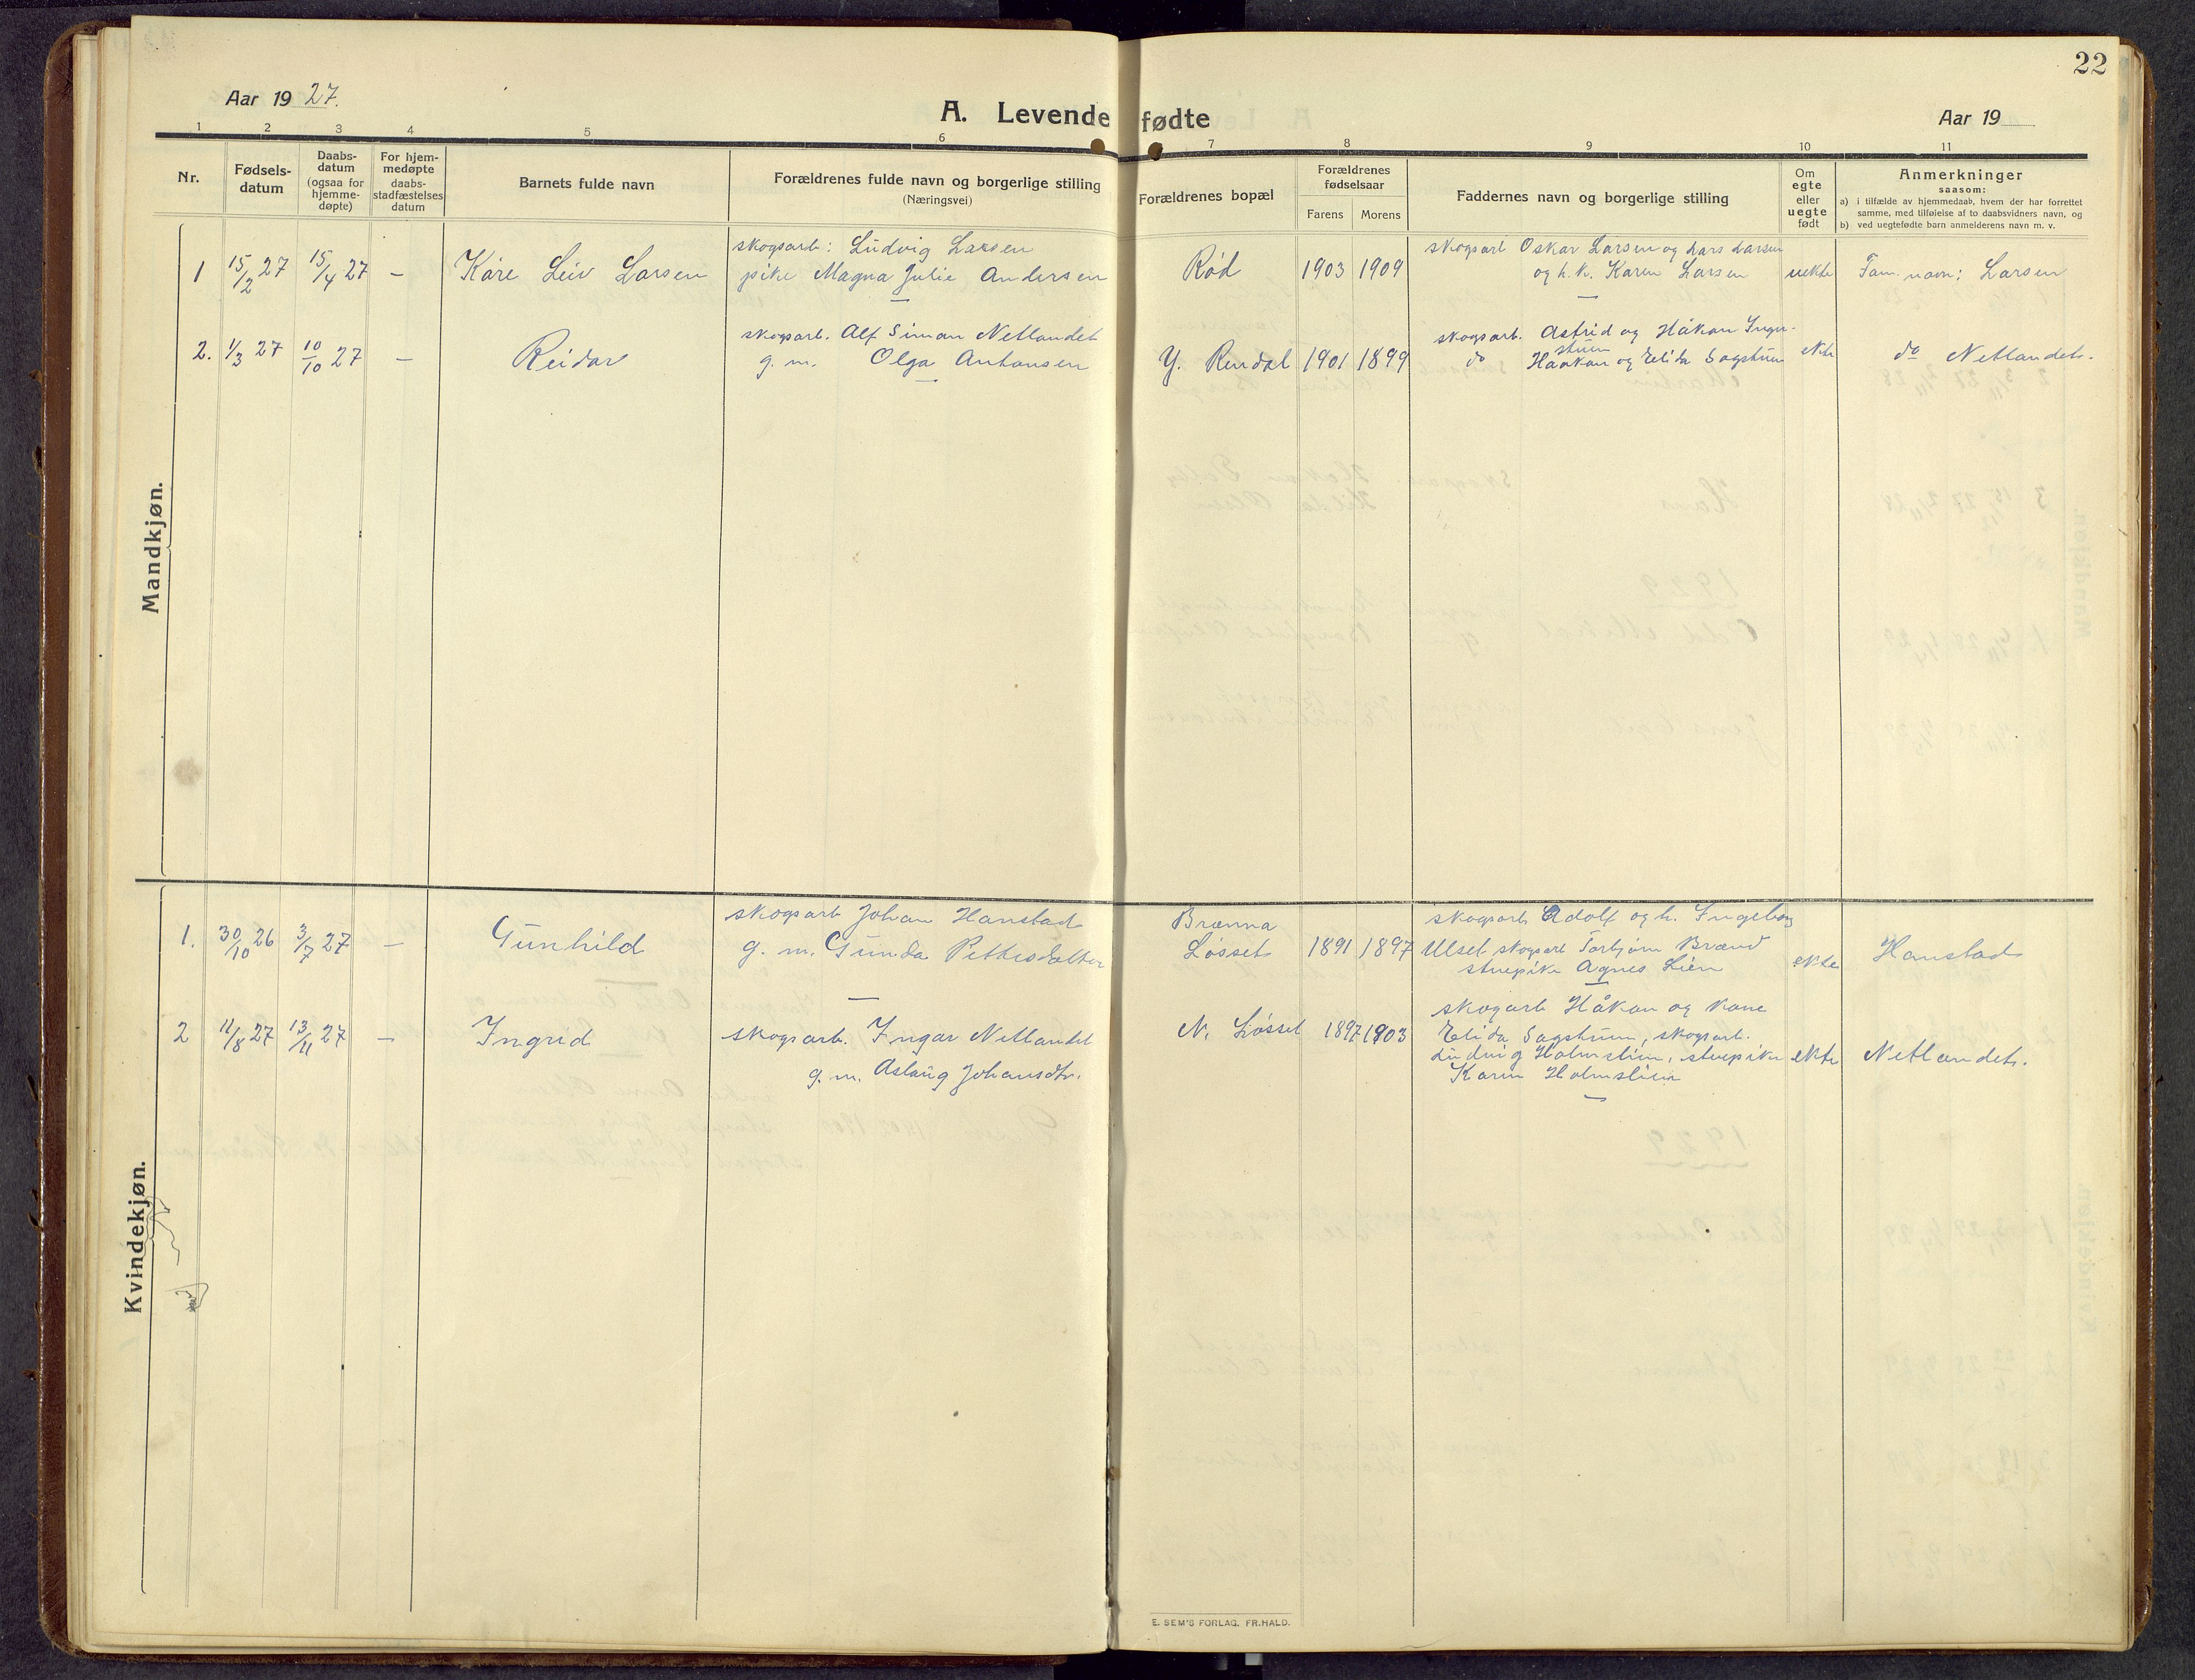 22
Aar 19 27.
A. Levende fødte
Aar 19
1 2 3 4 5 6 7 8 9 10 11
Nr.
Fødsels-
datum
Daabs-
datum
(ogsaa for
hjemme-
døpte)
For hjem-
medøpte
daabs-
stadfæstelses
datum
Barnets fulde navn
Forældrenes fulde navn og borgerlige stilling
(Næringsvei)
Forældrenes bopæl
Forældrenes
fødselsaar
Farens Morens
Faddernes navn og borgerlige stilling
Om
egte
eller
uegte
født
Anmerkninger
saasom:
a) i tilfælde av hjemmedaab, hvem der har forrettet
samme, med tilføielse af to daabsvidners navn, og
b) ved uegtefødte barn anmelderens navn m. v.
Mandkjøn.
1 15/2 27 15/4 27 – Kåre Leiv Larsen
skogsarb: Ludvig Larsen
pike Magna Julie Andersen
Rød 1903 1909
skogsarb Oskar Larsen og Lars Larsen
og h. k. Karen Larsen
uekte
Fam. navn: Larsen
2. 1/3 27 10/10 27 – Reidar
skogsarb. Alf Simon Netlandet
g. m. Olga Antonsen
Y. Rendal 1901 1899
skogsarb. Astrid og Håkon Ingu-
stuen
do Haakan og Elida Sagstuen
ekte
do Netlandet.
Kvindekjøn.
1. 30/10 26 3/7 27 – Gunhild
skogsarb Johan Hanstad
g. m. Gunda Pettersdatter
Brænna
Løsset 1891 1897
skogsarb Adolf og h. Ingeborg
Ulset skogsarb Torbjørn Brænd
stuepike Agnes Lien
ekte
Hanstad
2 11/8 27 13/11 27 – Ingrid
skogsarb. Ingar Netlandet
g. m. Aslaug Johansdtr.
N. Løsset 1897 1903
skogarb Håkan og kone
Elida Sagstuen, skogsarb.
Ludvig Holmstien, stuepike
Karen Holmstien
ekte
Netlandet.
E. SEM'S FORLAG. FR.HALD.